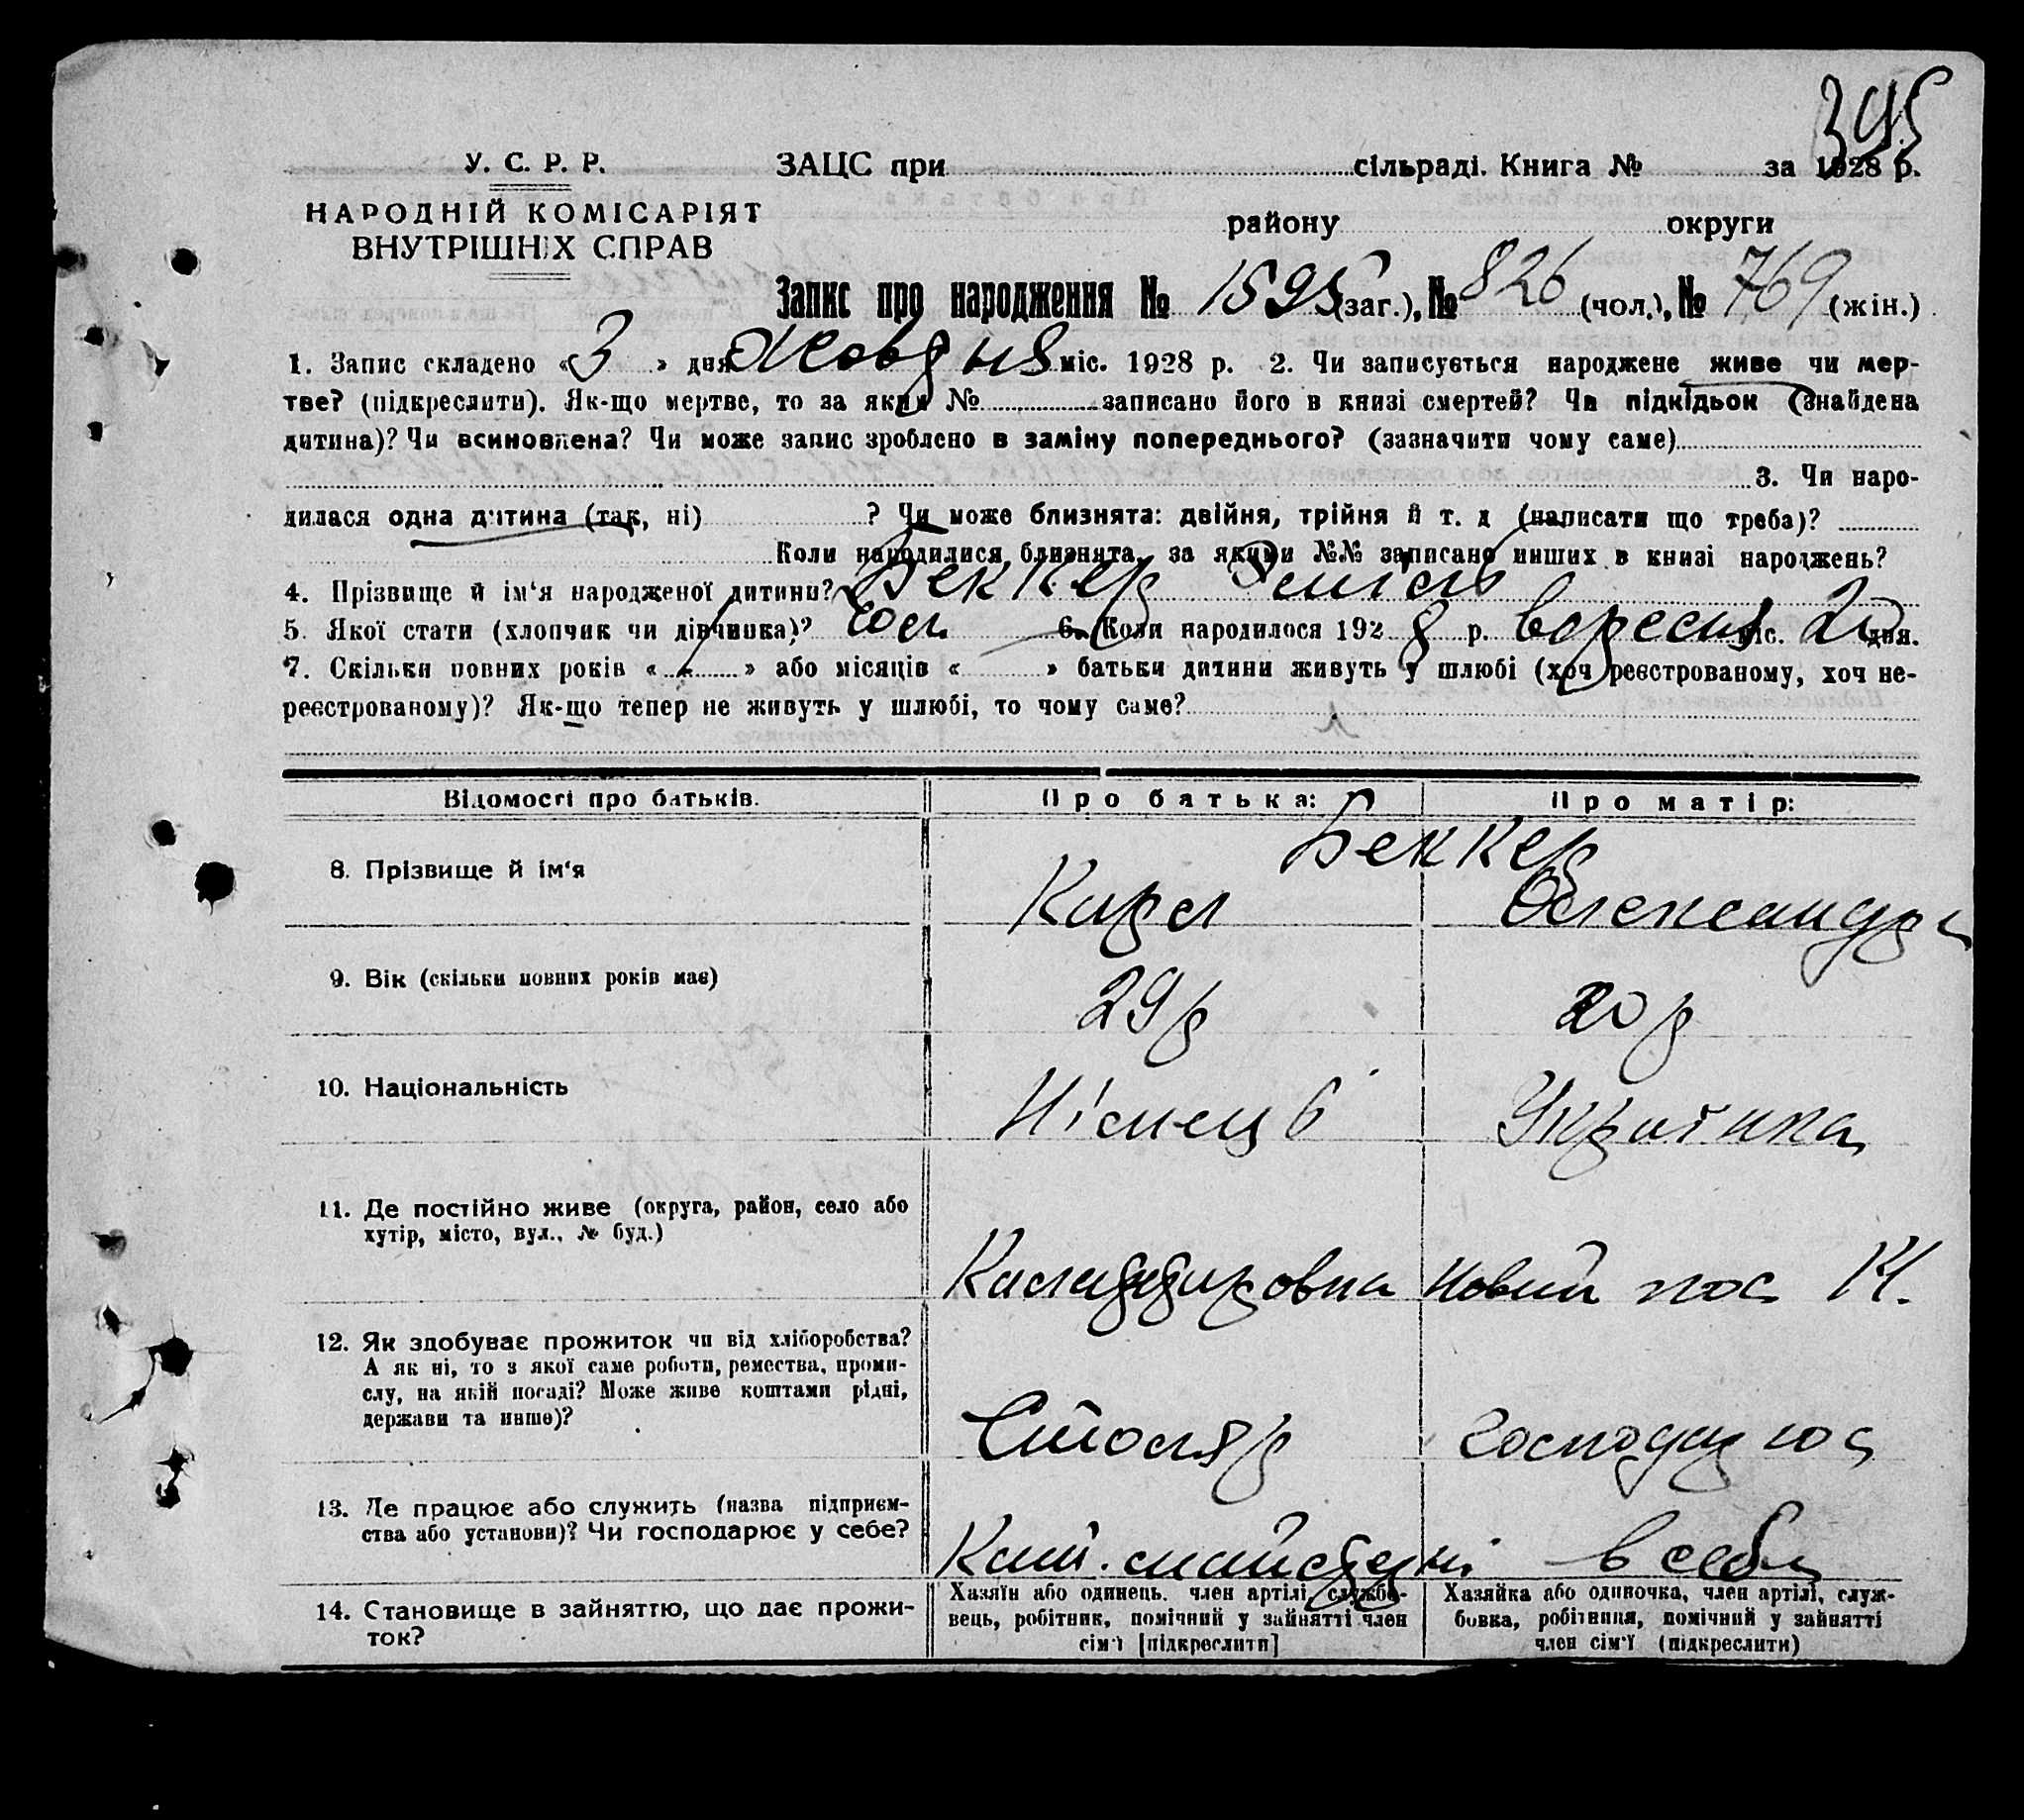 395
У. С. Р. Р.
НАРОДНІЙ КОМІСАРІЯТ
ВНУТРІШНІХ СПРАВ
ЗАЦС при сільраді. Книга № за 1928 р.
району округи
Запис про народження № 1595 (заг.), № 826 (чол.), № 769 (жін.)
1. Запис складено «3» дня Жовтня міс. 1928 р. 2. Чи записується народжене живе чи мер-
тве? (підкреслити). Як-що мертве, то за яким № записано його в книзі смертей? Чи підкідьок (знайдена
дитина)? Чи всиновлена? Чи може запис зроблено в заміну попереднього? (зазначити чому саме)
3. Чи наро-
дилася одна дитина (так, ні) ? Чи може близнята: двійня, трійня й т. д (написати що треба)?
Коли народилися близнята, за якими №№ записано инших в книзі народжень?
4. Прізвище й ім‘я народженої дитини? Беккер
5. Якої стати (хлопчик чи дівчинка)? 6. Коли народилося 1928 р. вересня міс. 20 дня.
7. Скільки повних років « » або місяців « » батьки дитини живуть у шлюбі (хоч реєстрованому, хоч не-
реєстрованому)? Як-що тепер не живуть у шлюбі, то чому саме?
Відомості про батьків. Про батька: Про матір:
Беккер
8. Прізвище й ім‘я Карл Олександра
9. Вік (скільки повних років має) 29 р 20 р
10. Національність Німець Українка
11. Де постійно живе (округа, район, село або
хутір, місто, вул., № буд.)
Новий пос
12. Як здобуває прожиток чи від хліборобства?
А як ні, то з якої саме роботи, ремества, проми-
слу, на якій посаді? Може живе коштами рідні,
держави та инше)?
Столяр
13. Де працює або служить (назва підприєм-
ства або установи)? Чи господарює у себе?
майстерні в себе
14. Становище в зайняттю, що дає прожи-
ток?
Хазяїн або одинець, член артілі, службо-
вець, робітник, помічний у зайнятті член
сім'ї [підкреслити]
Хазяйка або одиночка, член артілі, служ-
бовка, робітниця, помічний у зайнятті
член сім'ї (підкреслити)